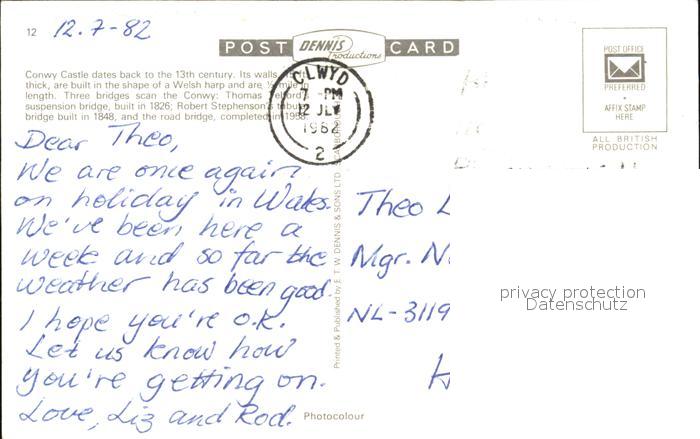 12 12.7-82
POST DENNIS Productions CARD
Conwy Castle dates back to the 13th century. Its walls,
thick, are built in the shape of a Welsh harp and are ½ mile in
length. Three bridges scan the Conwy: Thomas Telford's
suspension bridge, built in 1826; Robert Stephenson's tubular
bridge built in 1848, and the road bridge, completed in 1958.
CLWYD
7 - PM
12 JLY
1982
2
POST OFFICE
PREFERRED
AFFIX STAMP
HERE
ALL BRITISH
PRODUCTION
Dear Theo,
We are once again
on holiday in Wales.
We've been here a
week and so far the
weather has been good.
I hope you're o.k.
Let us know how
you're getting on.
Love, Liz and Rod.
Printed & Published by E. T. W. DENNIS & SONS LTD.
Photocolour
Theo L
Mgr. N
NL-3119
H
privacy protection
Datenschutz